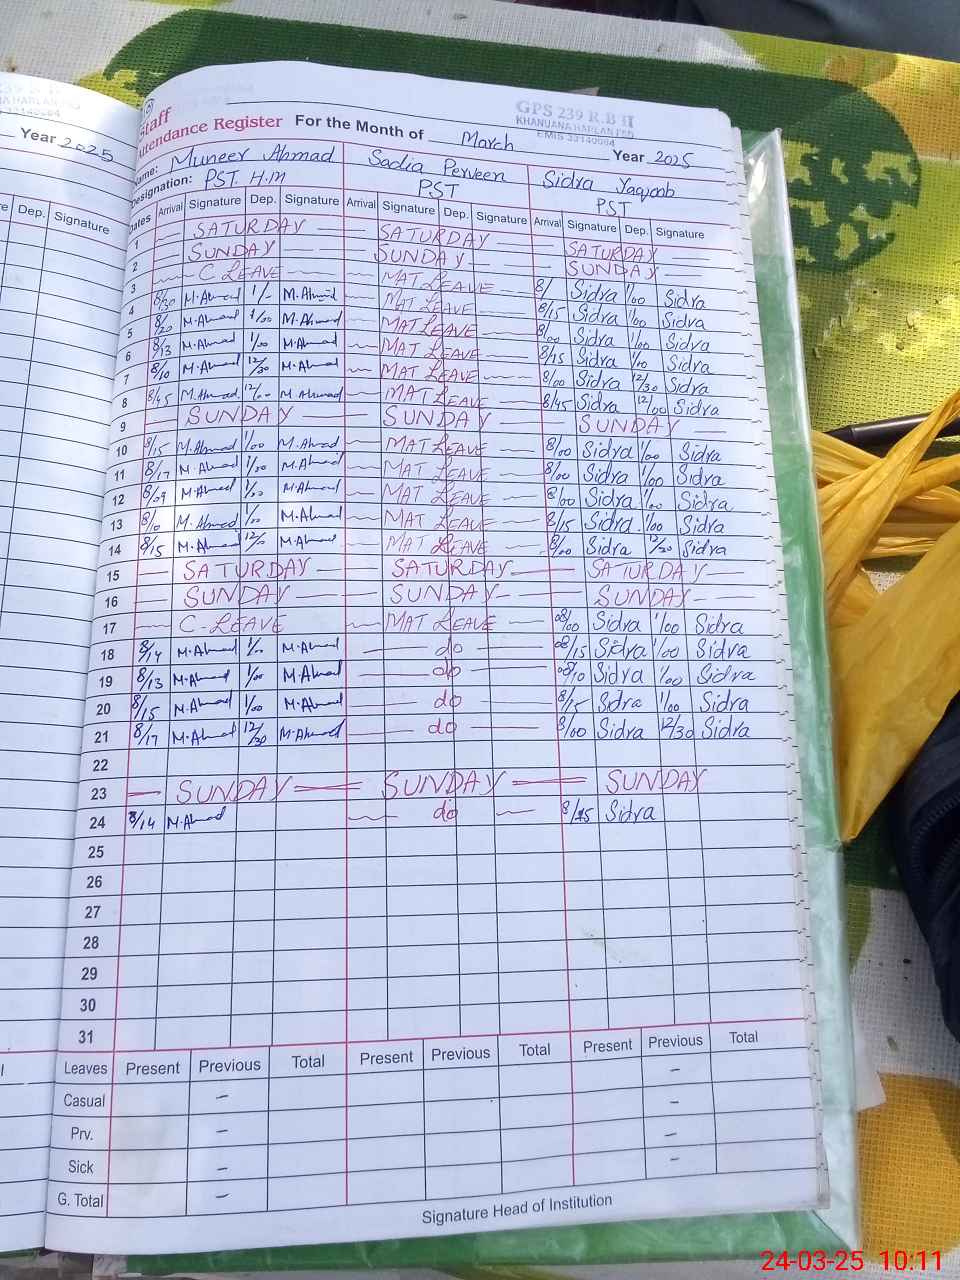 Staff
Attendance Register For the Month of March Year 2025
GPS 239 R.B II
KHANUANA HARLAN FSD
EMIS 33140064
Year 2025
Name: Muneer Ahmad Sadia Perveen Sidra Yaqoob
Designation: PST. H.M PST PST
Dates Arrival Signature Dep. Signature Arrival Signature Dep. Signature Arrival Signature Dep. Signature
Dep. Signature
1 SATURDAY SATURDAY SATURDAY
2 SUNDAY SUNDAY SUNDAY
3 C LEAVE MAT LEAVE 8/ Sidra 1/00 Sidra
4 8/30 M.Ahmad 1/- M.Ahmad MAT LEAVE 8/15 Sidra 1/00 Sidra
5 8/20 M.Ahmad 1/00 M.Ahmad MAT LEAVE 8/00 Sidra 1/00 Sidra
6 8/13 M.Ahmad 1/00 M.Ahmad MAT LEAVE 8/15 Sidra 1/00 Sidra
7 8/10 M.Ahmad 12/30 M.Ahmad MAT LEAVE 8/00 Sidra 12/30 Sidra
8 8/45 M.Ahmad 12/00 M Ahmad MAT LEAVE 8/45 Sidra 12/00 Sidra
9 SUNDAY SUNDAY SUNDAY
10 8/15 M.Ahmad 1/00 M.Ahmad MAT LEAVE 8/00 Sidra 1/00 Sidra
11 8/17 M.Ahmad 1/00 M.Ahmad MAT LEAVE 8/00 Sidra 1/00 Sidra
12 8/09 M.Ahmad 1/00 M.Ahmad MAT LEAVE 8/00 Sidra 1/00 Sidra
13 8/10 M.Ahmad 1/00 M.Ahmad MAT LEAVE 8/15 Sidra 1/00 Sidra
14 8/15 M.Ahmad M.Ahmad MAT LEAVE 8/00 Sidra 12/20 Sidra
15 SATURDAY SATURDAY SATURDAY
16 SUNDAY SUNDAY SUNDAY
17 C-LEAVE MAT LEAVE 08/00 Sidra 1/00 Sidra
18 8/14 M.Ahmad 1/00 M.Ahmad do 08/15 Sidra 1/00 Sidra
19 8/13 M.Ahmad 1/00 M.Ahmad do 08/10 Sidra 1/00 Sidra
20 8/15 M.Ahmad 1/00 M.Ahmad do 8/15 Sidra 1/00 Sidra
21 8/17 M.Ahmad 12/30 M.Ahmad do 8/00 Sidra 12/30 Sidra
22
23 SUNDAY SUNDAY SUNDAY
24 8/14 M.Ahmad do 8/15 Sidra
25
26
27
28
29
30
31
Leaves Present Previous Total Present Previous Total Present Previous Total
Casual
Prv.
Sick
G. Total
Signature Head of Institution
24-03-25 10:11